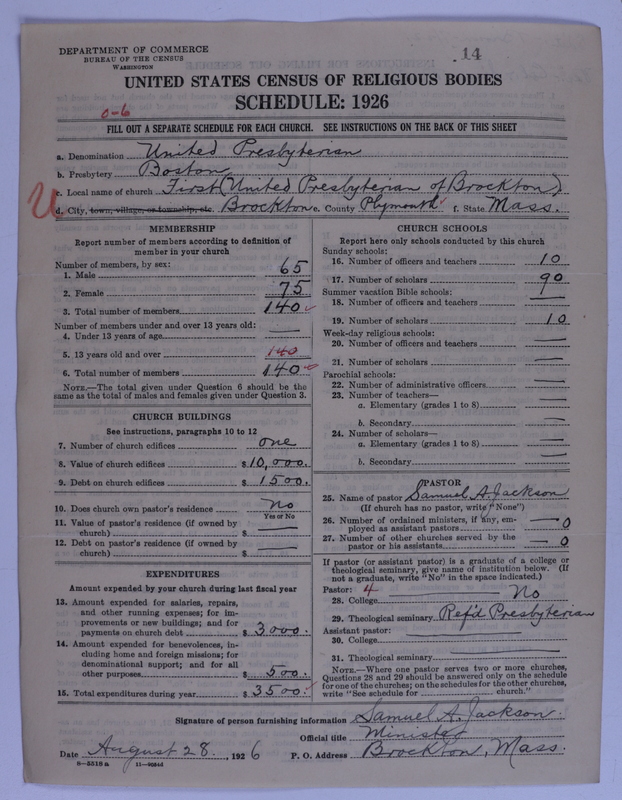 DEPARTMENT OF COMMERCE
BUREAU OF THE CENSUS
WASHINGTON
14
UNITED STATES CENSUS OF RELIGIOUS BODIES
SCHEDULE: 1926
0-6
FILL OUT A SEPARATE SCHEDULE FOR EACH CHURCH. SEE INSTRUCTIONS ON THE BACK OF THIS SHEET
a. Denomination United Presbyterian
b. Presbytery Boston
c. Local name of church First (United Presbyterian of Brockton)
U
d. City, town, village, or township, etc. Brockton e. County Plymouth f. State Mass.
MEMBERSHIP
Report number of members according to definition of
member in your church
Number of members, by sex:
1. Male 65
2. Female 75
3. Total number of members 140
Number of members under and over 13 years old:
4. Under 13 years of age —
5. 13 years old and over 140
6. Total number of members 140
NOTE.—The total given under Question 6 should be the
same as the total of males and females given under Question 3.
CHURCH BUILDINGS
See instructions, paragraphs 10 to 12
7. Number of church edifices one
8. Value of church edifices $10,000.
9. Debt on church edifices $1500.
10. Does church own pastor's residence No
Yes or No
11. Value of pastor's residence (if owned by
church) $ —
12. Debt on pastor's residence (if owned by
church) $ —
EXPENDITURES
Amount expended by your church during last fiscal year
13. Amount expended for salaries, repairs,
and other running expenses; for im-
provements or new buildings; and for
payments on church debt $3000.
14. Amount expended for benevolences, in-
cluding home and foreign missions; for
denominational support; and for all
other purposes $500.
15. Total expenditures during year $3500.
CHURCH SCHOOLS
Report here only schools conducted by this church
Sunday schools:
16. Number of officers and teachers 10
17. Number of scholars 90
Summer vacation Bible schools:
18. Number of officers and teachers —
19. Number of scholars 10
Week-day religious schools:
20. Number of officers and teachers —
21. Number of scholars —
Parochial schools:
22. Number of administrative officers —
23. Number of teachers—
a. Elementary (grades 1 to 8) —
b. Secondary —
24. Number of scholars—
a. Elementary (grades 1 to 8) —
b. Secondary —
PASTOR
25. Name of pastor Samuel A. Jackson
(If church has no pastor, write "None")
26. Number of ordained ministers, if any, em-
ployed as assistant pastors — 0
27. Number of other churches served by the
pastor or his assistants — 0
If pastor (or assistant pastor) is a graduate of a college or
theological seminary, give name of institution below. (If
not a graduate, write "No" in the space indicated.)
Pastor: 4
28. College — No
29. Theological seminary Ref'd Presbyterian
Assistant pastor:
30. College —
31. Theological seminary —
NOTE.—Where one pastor serves two or more churches,
Questions 28 and 29 should be answered only on the schedule
for one of the churches; on the schedules for the other churches,
write "See schedule for church."
Signature of person furnishing information Samuel A. Jackson.
Official title Minister
Date August 28, 1926 P. O. Address Brockton, Mass.
8-5318 a